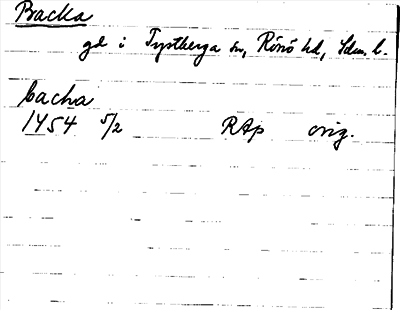 Backa
gd i Tystberga sn, Rönö hd, Sdm. l.
bacha
1454 5/2 RAp orig.